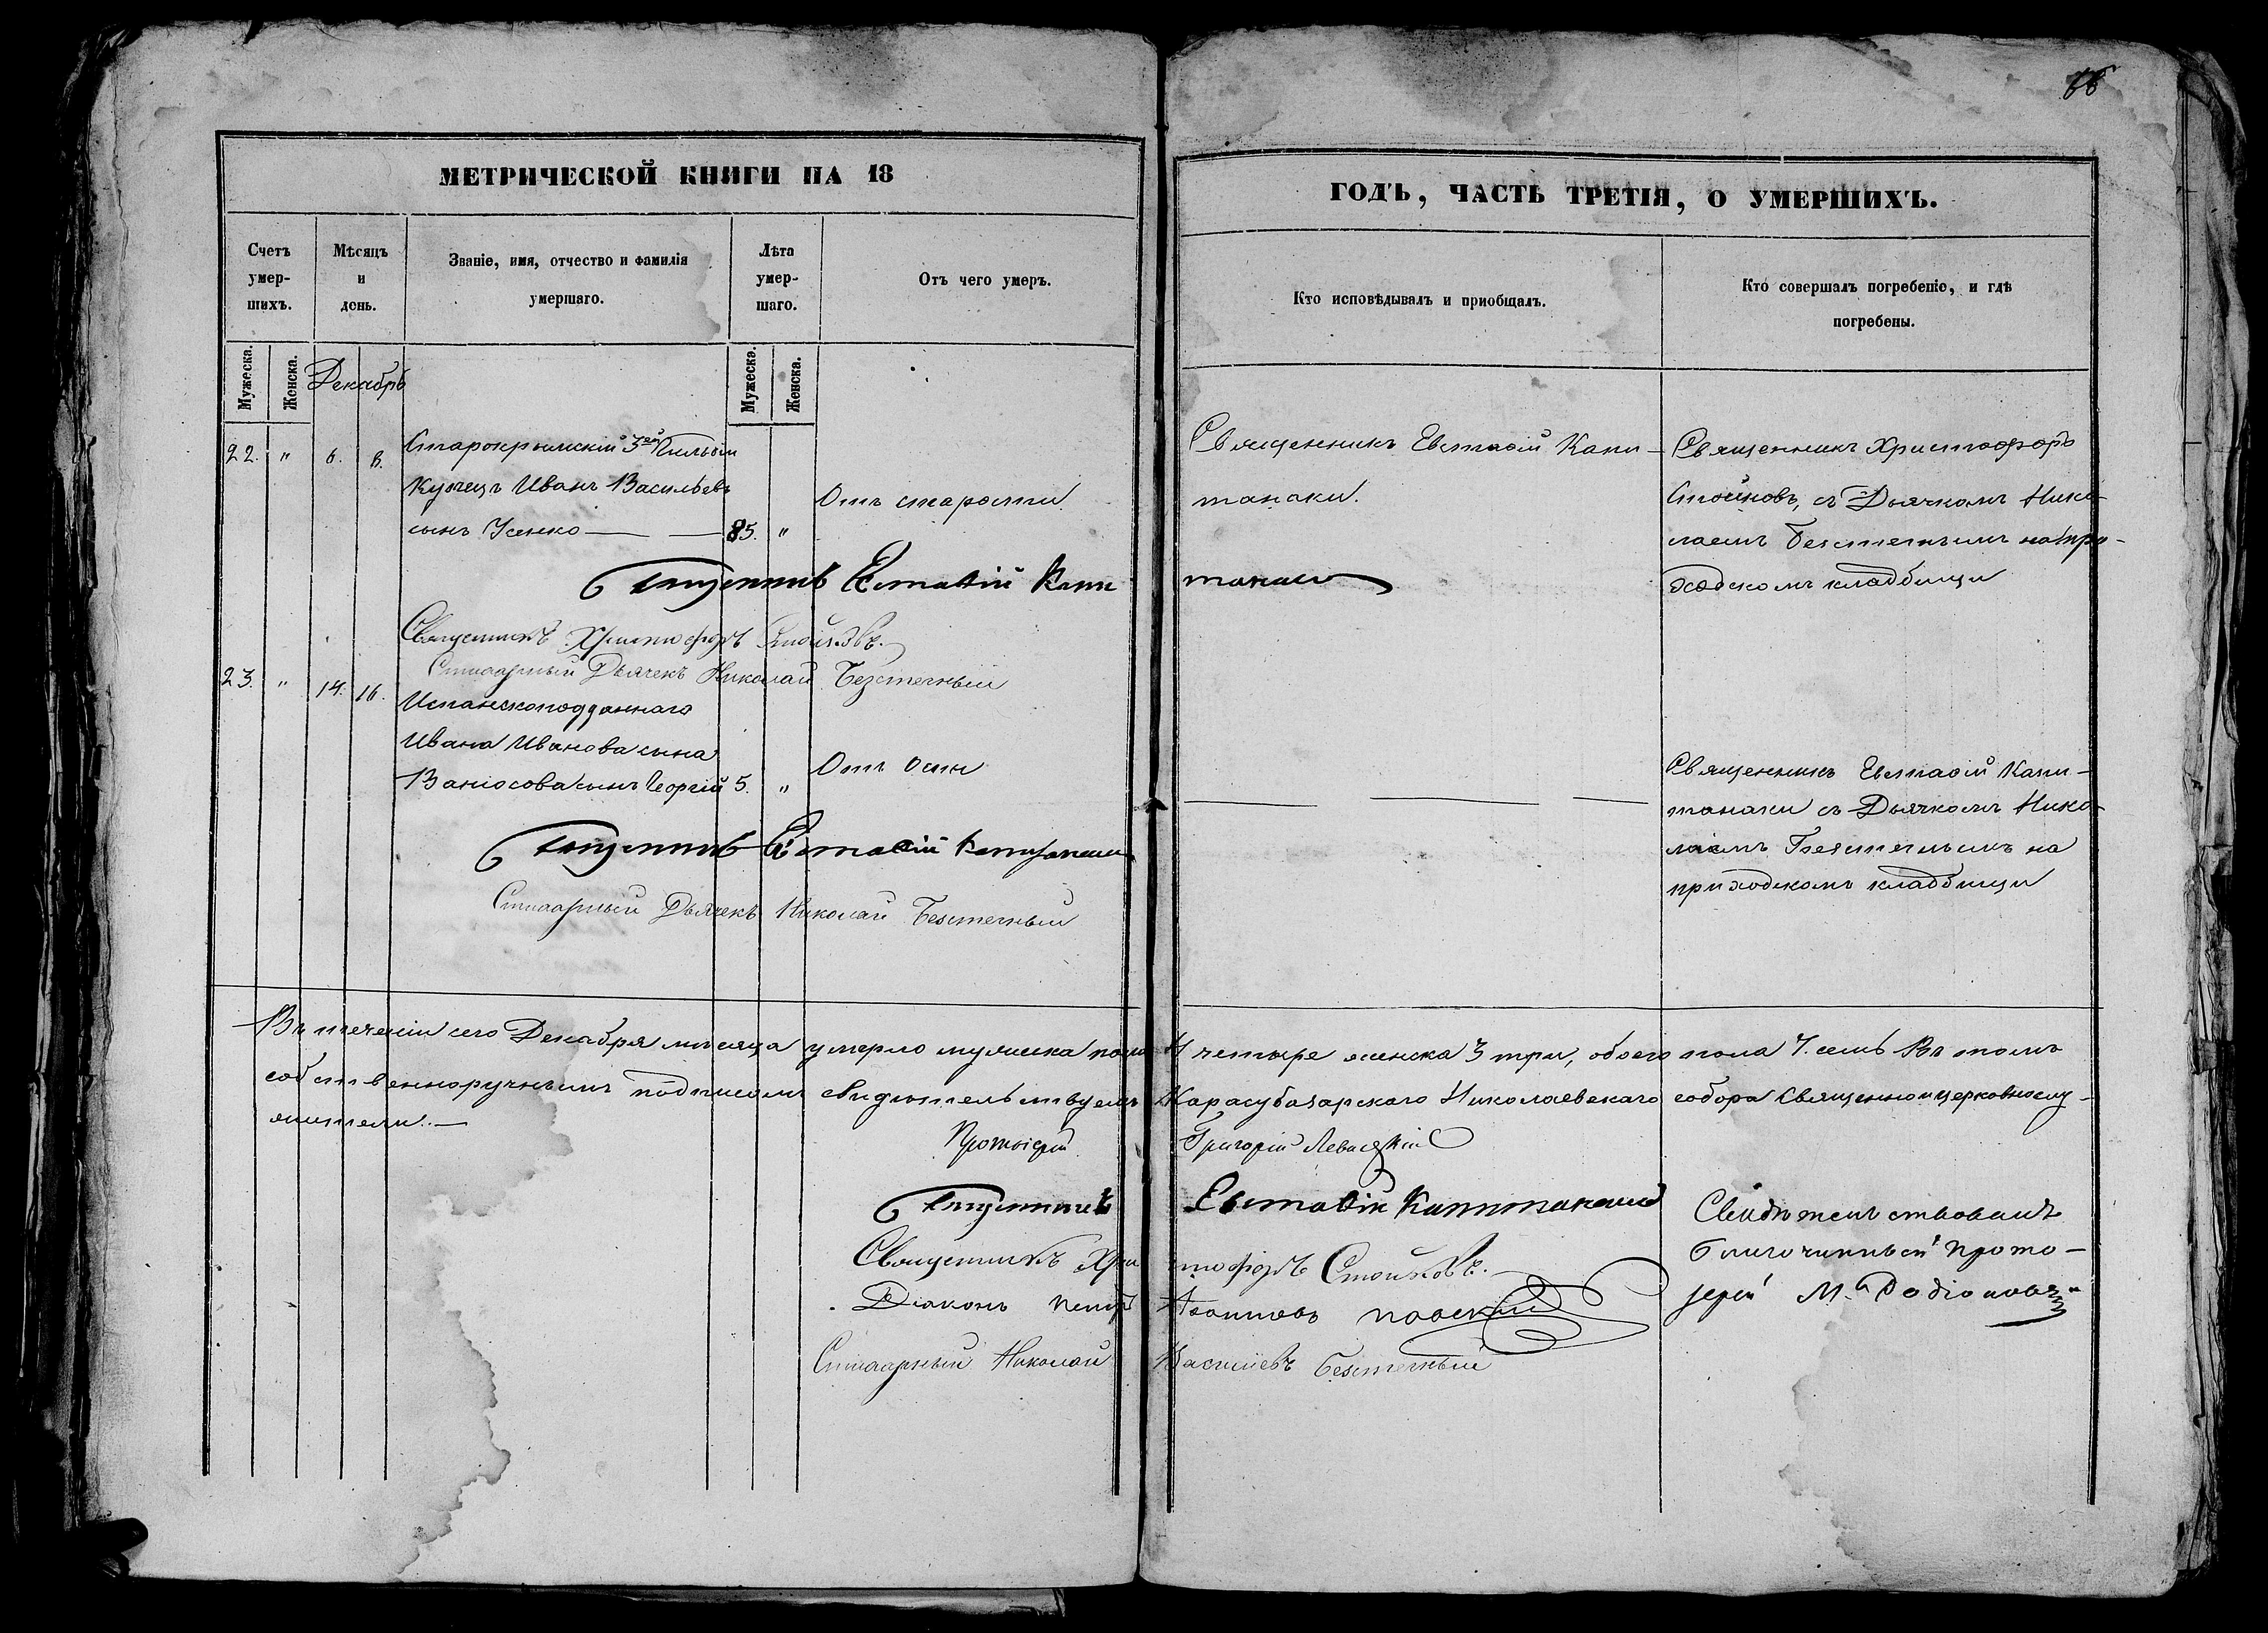 66
МЕТРИЧЕСКОЙ КНИГИ НА 18
ГОДЪ, ЧАСТЬ ТРЕТІЯ, О УМЕРШИХЪ.
Счетъ умер-шихъ.
Мѣсяцъ и день.
Званіе, имя, отчество и фамилія умершаго.
Лѣта умер-шаго.
Отъ чего умеръ.
Кто исповѣдывалъ и пріобщалъ.
Кто совершалъ погребеніе, и гдѣ погребены.
Мужеска.
Женска.
Декабрь
Мужеска.
Женска.
22. " 6. 8.
Старокрымскій 3ей Гильдіи
Купецъ Иванъ Васильевъ
сынъ Усенко — — 85. "
Отъ старости
Священникъ Евстафій Капи-
танаки.
Священникъ Христофоръ
Стойковъ, съ Дьячкомъ Нико-
лаемъ Безстечнымъ на при-
ходскомъ кладбищи
Священникъ Евстафій Капитанаки
Священникъ Христофоръ Стойковъ.
Стихарный Дьячекъ Николай Безстечный
23. " 14. 16.
Испанскоподданнаго
Ивана Иванова сына
сынъ Георгій 5. "
Отъ Оспи
— — —
Священникъ Евстафій Капи-
танаки съ Дьячкомъ Нико-
лаемъ Безстечнымъ на
приходскомъ кладбищи
Священникъ Евстафій Капитанаки
Стихарный Дьячекъ Николай Безстечный
Въ теченіи сего Декабря мѣсяца умерло мужеска пола 4 четыре женска 3 три, обоего пола 7. семь Въ томъ
собственноручнымъ подписомъ свидѣтельствуемъ Карасубазарскаго Николаевскаго собора Священно и церковнослу-
жители.—
Протоіерей Григорій
Священникъ Евстафій Капитанаки
Священникъ Христофоръ Стойковъ.
Діаконъ Петръ
Стихарный Николай Васильевъ Безстечный
Свидѣтельствовалъ
благочинный Прото-
іерей М. Родіоновъ